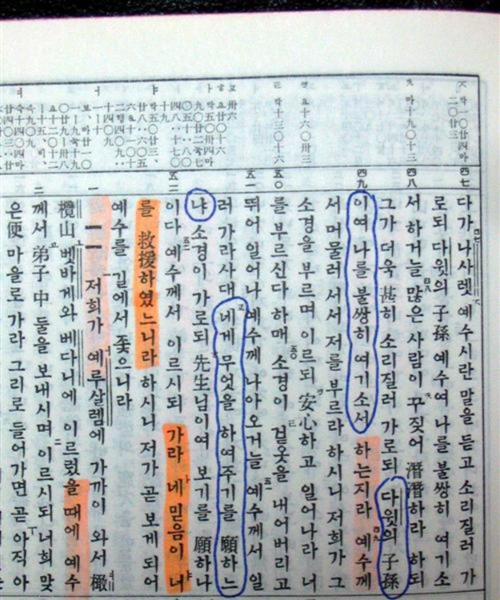 四七 다가 나사렛 예수시란 말을 듣고 소리질러 가
로되 다윗의 子孫 예수여 나를 불쌍히 여기소
四八 서 하거늘 많은 사람이 꾸짖어 潛潛하라 하되
그가 더욱 甚히 소리질러 가로되 다윗의 子孫
四九 이여 나를 불쌍히 여기소서 하는지라 예수께
서 머물러 서서 저를 부르라 하시니 저희가 그
소경을 부르며 이르되 安心하고 일어나라 너
五〇 를 부르신다 하매 소경이 겉옷을 내어버리고
五一 뛰어 일어나 예수께 나아오거늘 예수께서 일
러 가라사대 네게 무엇을 하여주기를 願하느
냐 소경이 가로되 先生님이여 보기를 願하나
五二 이다 예수께서 이르시되 가라 네 믿음이 너
를 救援하였느니라 하시니 저가 곧 보게 되어
예수를 길에서 좇으니라
一 一一 저희가 예루살렘에 가까이 와서 橄
欖山 벳바게와 베다니에 이르렀을 때에 예수
二 께서 弟子 中 둘을 보내시며 이르시되 너희 맞
은便 마을로 가라 그리로 들어가면 곧 아직 아